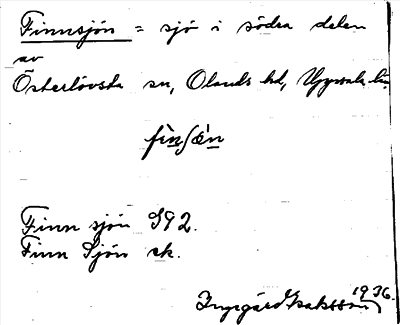 Finnsjön = sjö i södra delen
av
Österlövsta sn, Olands hd, Uppsala län.
fìnʃœ̀n
Finn sjön S92.
Finn Sjön ek.
1936.
Ingegärd Isaksson